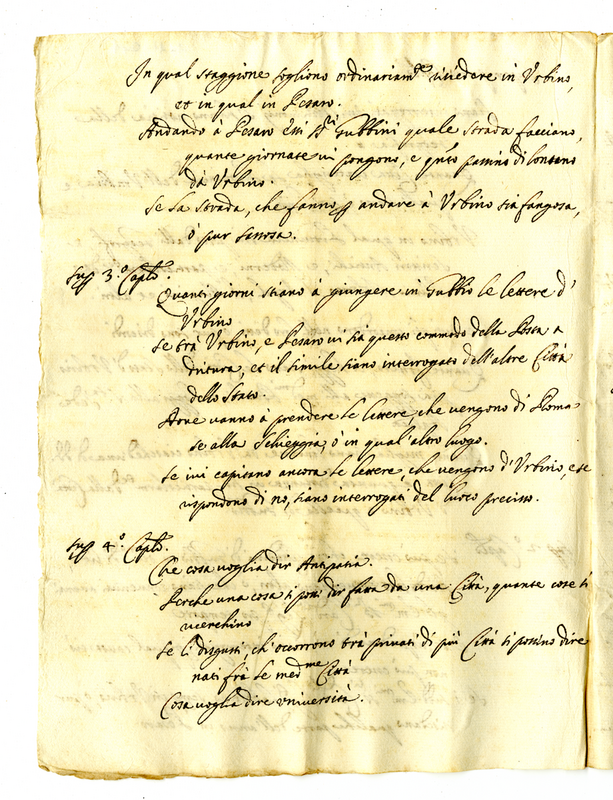 In qual staggione sogliono ordinariam.te risiedere in Urbino,
et in qual in Pesaro.
Andando à Pesaro essi SS.ri Gubbini quale strada facciano,
quante giornate vi pongono, e q.to passino di lontano
dà Urbino.
Se la strada, che fanno p andare à Urbino sia fangosa,
ò pur sassosa.
Sup 3.º Caplo.
Quanti giorni stiano à giungere in Gubbio le lettere d'
Urbino
Se trà Urbino, e Pesaro vi sia questo commodo della Posta a
dritura, et il simile siano interrogati dell'altre Città
dello Stato.
Dove vanno à prendere le lettere, che vengono di Roma
se alla Schieggia, ò in qual'altro luogo.
Se ivi capitano ancora le lettere, che vengono d'Urbino, e se
rispondono di nò, siano interrogati del luoco preciso.
Sup 4.º Caplo.
Che cosa voglia dir Antipatia.
Perche una cosa si possi dir fatta da una Città, quante cose si
ricerchino
Se li disgusti, ch'occorrono trà privati di più Città si possino dire
nati frà le med.me Città
Cosa voglia dire università.